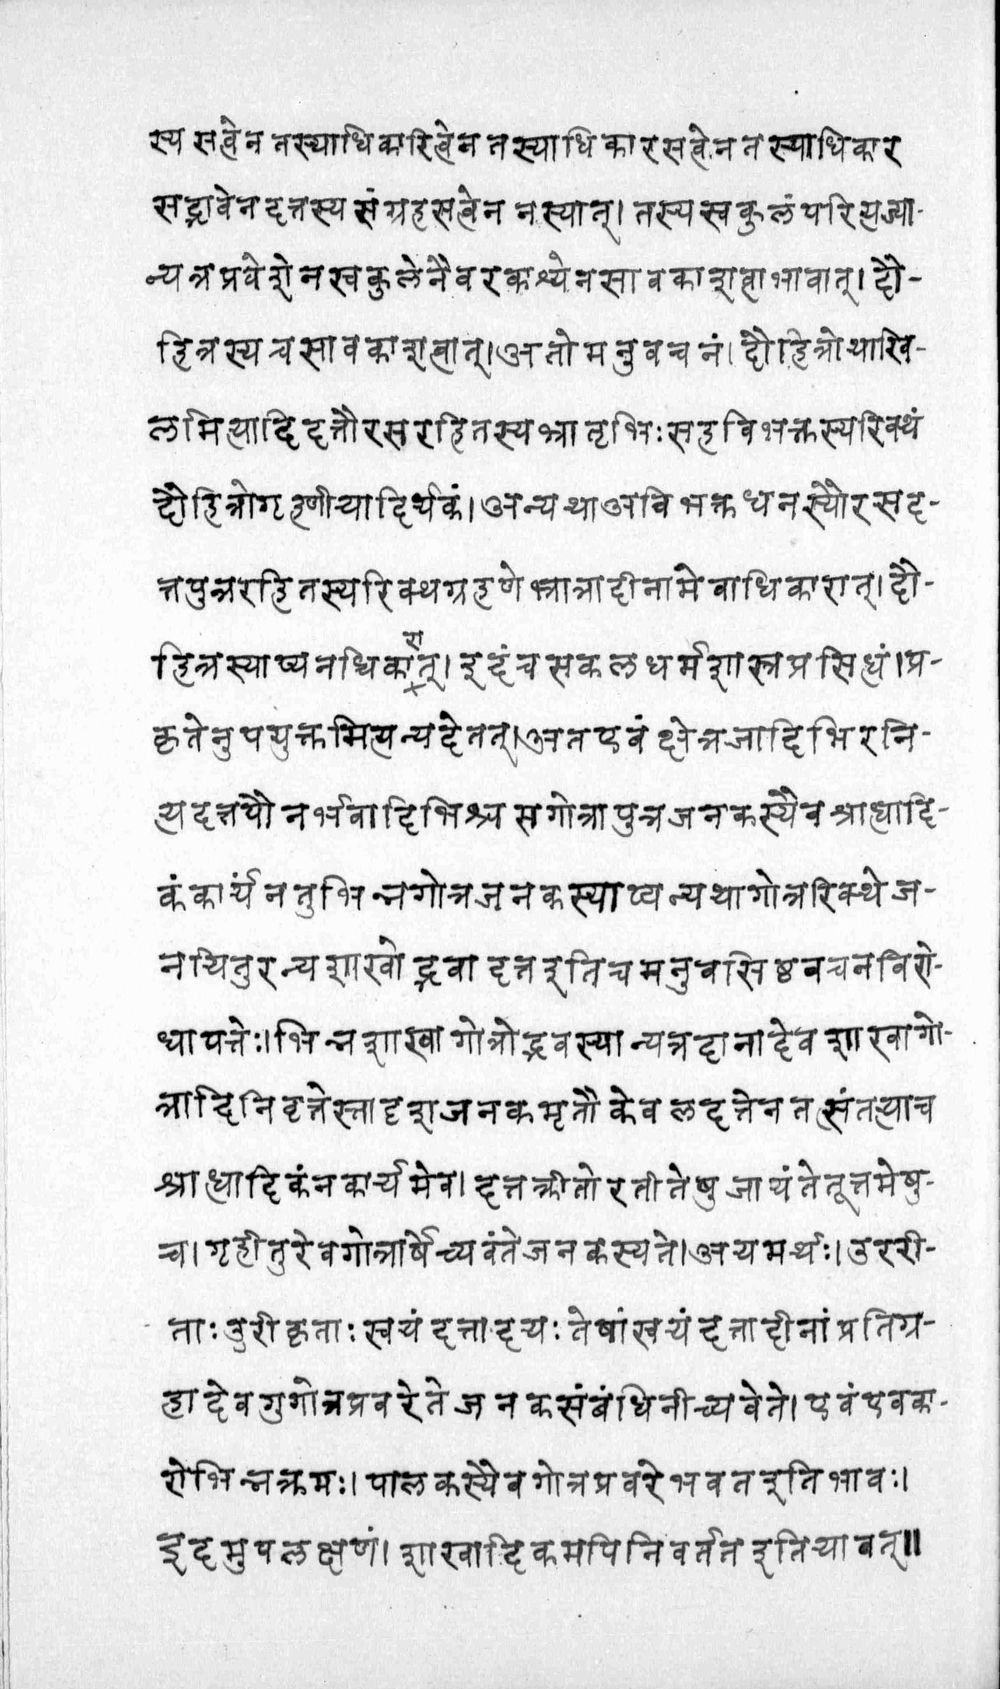 स्य सत्वेन तस्याधिकारित्वेन तस्याधिकारसत्वेन तस्याधिकार
सद्भावेन दत्तस्य संग्रहसत्वेन नस्यात्। तस्य स्वकुलं परित्यज्या-
न्यत्रप्रवेशेन स्वकुलेनैवरकाश्येन सावकाशत्वाभावात्। दौ-
हित्रस्य च सावकाशत्वात्। अतो मनुवचनं। दौहित्रो याखि-
लमित्यादि दत्तौरसरहितस्य भ्रातृभिः सह विभक्तस्य रिक्थं
दौहित्रो गृह्णीयादिर्थकं। अन्यथा अविभक्तधनस्यौरसद-
त्तपुत्ररहितस्य रिक्थग्रहणे भ्रात्रादीनामेवाधिकारात्। दौ-
हित्रस्याप्यनधिकारात्। इदं च सकलधर्मशास्त्रप्रसिद्धं। प्र-
कृतेनुपयुक्तमित्यन्यदेतत्। अत एवं क्षेत्रजादिभिरनि-
त्यदत्तपौनर्भवादिभिश्च सगोत्रापुत्रजनकस्यैव श्राद्धादि-
कं कार्यं नतु भिन्नगोत्रजनकस्याप्यन्यथा गोत्ररिक्थे ज-
नयितुरन्यशाखोद्भवा दत्त इति च मनुवसिष्ठवचनविरो-
धापत्तेः। भिन्नशाखागोत्रोद्भवस्यान्यत्रदानादेव शाखागो-
त्रादिनिवृत्तेस्तादृशजनकमृतौ केवलदत्तेन तत्संतत्याच
श्राद्धादिकं न कार्यमेव। दत्तक्रीतोरतीतेषु जायंतेतूत्तमेषु-
च। गृहीतुरेव गोत्रार्षे च्यवंते जनकस्य ते। अयमर्थः। उररी-
ताः उरीकृताः स्वयं दत्तादयः तेषां स्वयं दत्तादीनां प्रतिग्र-
हादेव गुगोत्रप्रवरे ते जनकसंबंधिनी च्यवेते। एवं एवका-
रो भिन्नक्रमः। पालकस्यैव गोत्रप्रवरे भवत इति भावः।
इदमुपलक्षणं। शाखादिकमपि निवर्तत इति यावत्॥